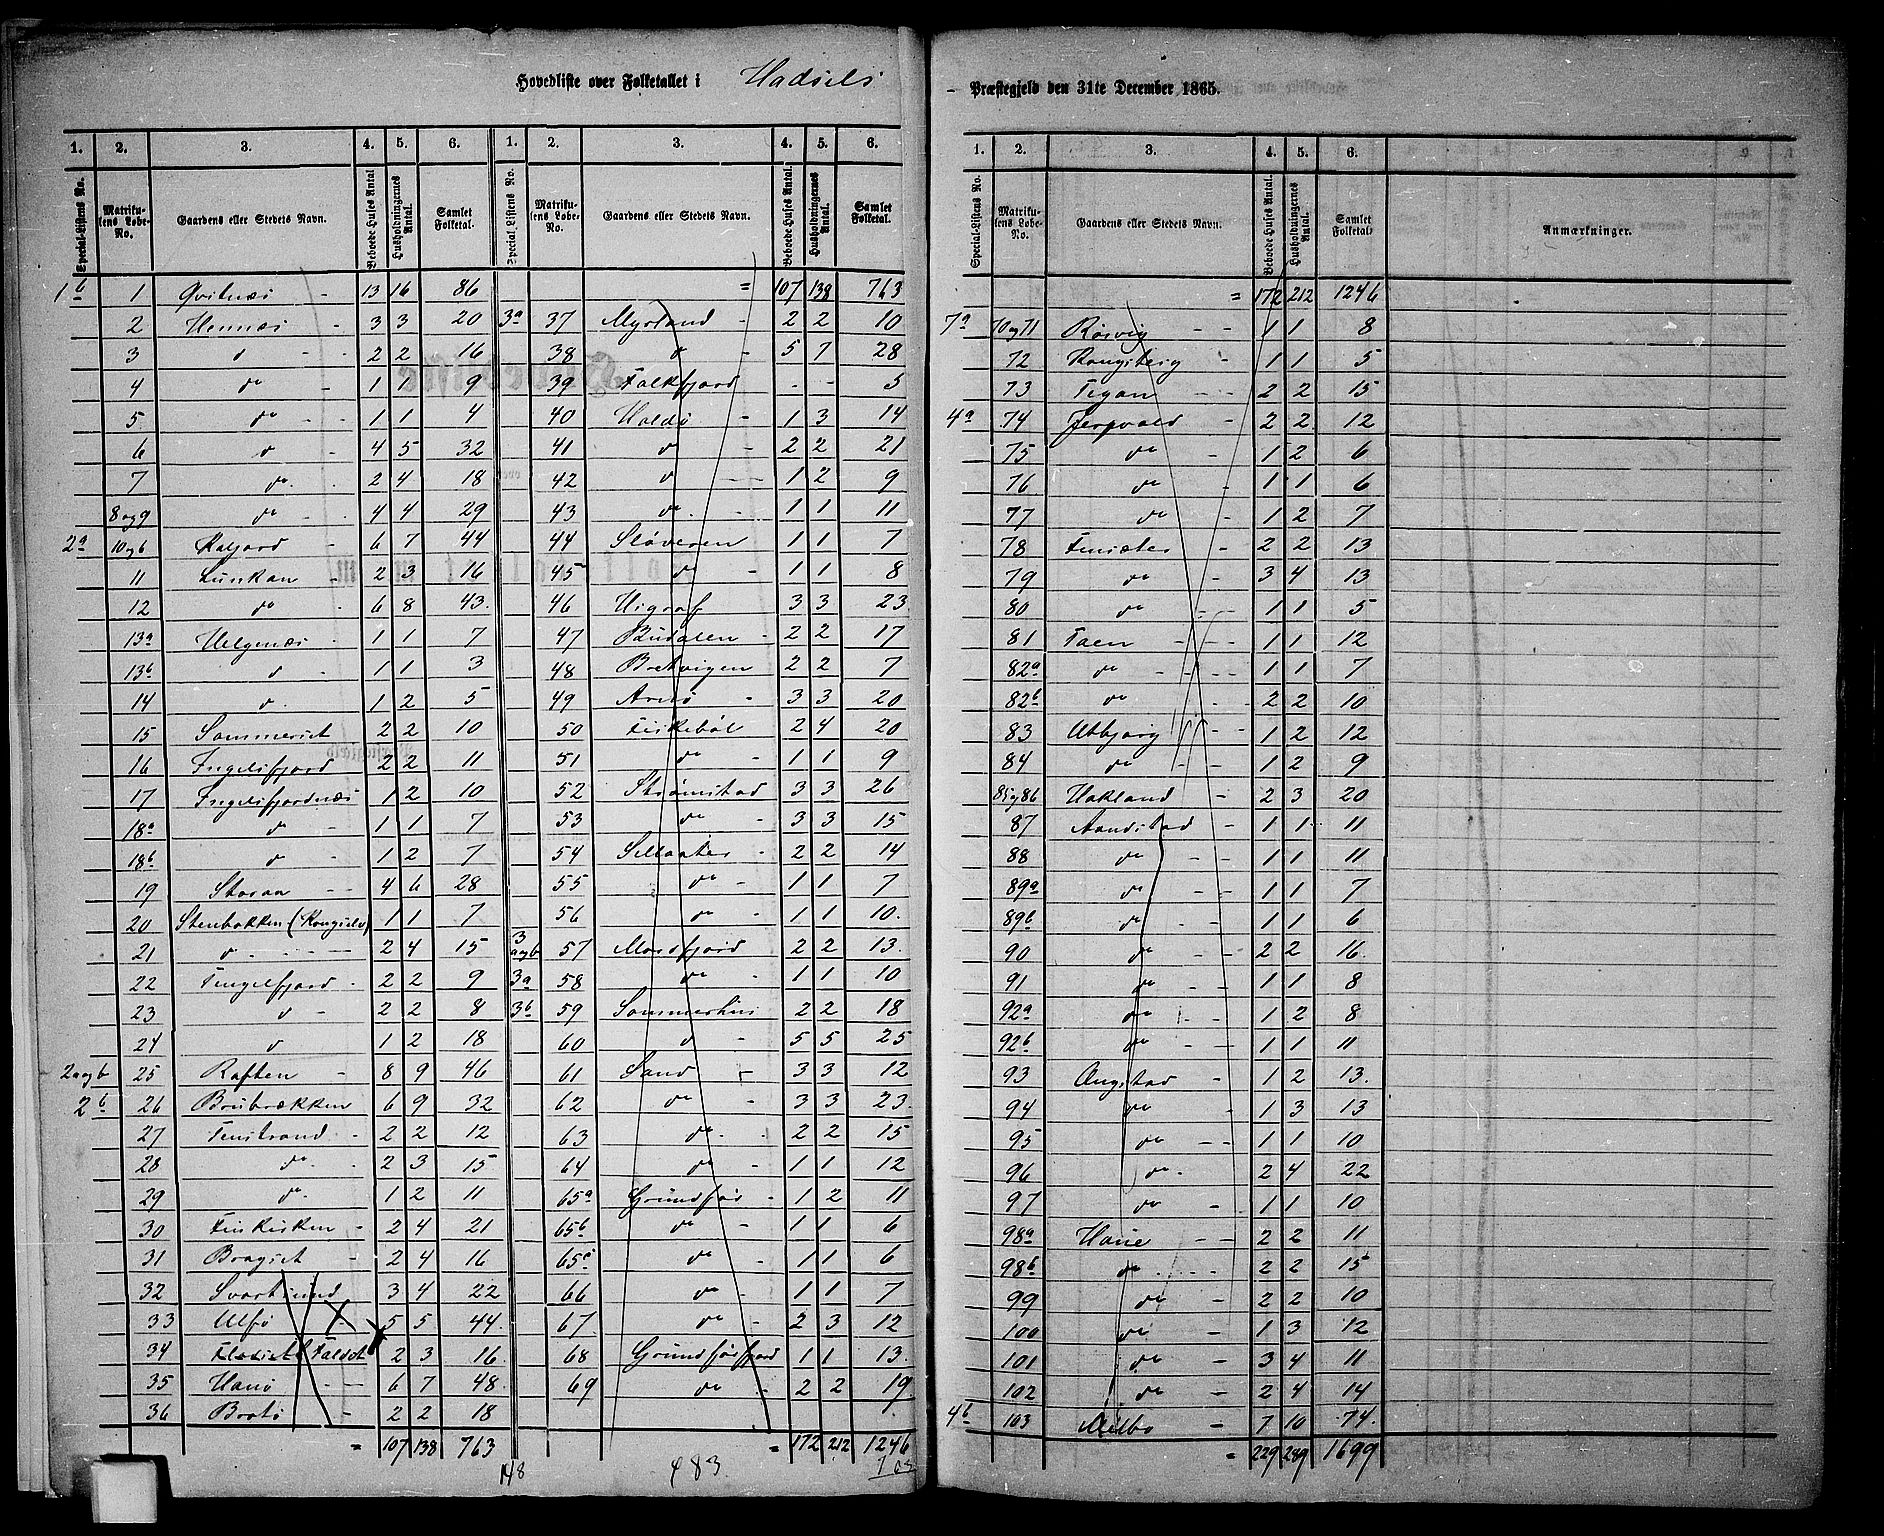 Hovedliste over Folketallet i Hadsels Præstegjeld den 31te December 1865.
1. 2. 3. 4. 5. 6. 1. 2. 3. 4. 5. 6.
Special-Listens No. Matrikulens Løbe-No. Gaardens eller Stedets Navn. Beboede Huses Antal Husholdningernes Antal. Samlet Folketal. Special-Listens No. Matrikulens Løbe-No. Gaardens eller Stedets Navn. Beboede Huses Antal. Husholdningernes Antal. Samlet Folketal.
1b 1 Qvitnæs - 13 16 86
2 Hennæs - 3 3 20
3 do - - 2 2 16
4 do - 1 1 9
5 do - 1 1 4
6 do - 4 5 32
7 do. - 2 4 18
8og9 do. - 4 4 29
2a 10og6 Kaljord - 6 7 44
11 Lunkan - 2 3 16
12 do - 6 8 43.
13a Helgenæs - 1 1 7
13b do - 1 1 3
14 do. - 1 2 5
15 Sommerset 2 2 10
16 Ingelsfjord 2 2 11
17 Ingelsfjordnæs 1 2 10
18a do - 1 1 7
18b do - 1 2 7
19 Storaa - - 4 6 28
20 Stenbakken (Kongselv) 1 1 7
21 do - - - 2 4 15
22 Tengelfjord - 2 2 9
23 do - 2 2 8
24 do 1 2 18
2aogb 25 Raften - 8 9 46
2b 26 Brubrækken 6 9 32
27 Finstrand - 2 2 12
28 do. - 2 3 15
29 do. 1 2 11
30 Fiskisken - 2 4 21
31 Brogset - 2 4 16
32 Svartsund 3 4 22
33 Ulfø 5 5 44.
34 Faldet 2 3 16.
35 Hanø - - 6 7 48.
36 Brotø - 2 2 18
= 107 138 763
= 107 138 763
3a 37 Myrland - 2 2 10
38 do - 5 7 28
39 Falkfjord - - 5
40 Holdø - 1 3 14
41 do - 2 2 21
42 do - - 1 2 9
43 do. - 1 1 11
44 Sløveren 1 1 7
45 do - 1 1 8
46 Higraf 3 3 23
47 Budalen - 2 2 17
48 Bretvigen 2 2 7
49 Arnø - 3 3 20
50 Fiskebøl 2 4 20
51 do - 1 1 9
52 Strømstad 3 3 26
53 do - 3 3 15
54 Sellaater - 2 2 14
55 do - 1 1 7
56 do - 1 1 10.
3aogb 57 Morfjord 2 2 13.
3a 58 do - 1 1 10
3b 59 Sommerhus 2 2 18
60 do - 5 5 25
61 Sand - 3 3 12
62 do - 3 3 23.
63 do. - 2 2 15
64 do - 1 1 12
65a Grundfør - 1 2 11
65b do - 1 1 6
65c do 1 1 6
66 do - 1 1 7
67 do - 2 3 12
68 Grundførfjord 1 1 13.
69 do - 2 2 19
= 172 212 1246
148 483
1. 2. 3. 4. 5. 6.
Special-Listens No. Matrikulens Løbe-No. Gaardens eller Stedets Navn. Beboede Huses Antal. Husholdningernes Antal. Samlet Folketal. Anmærkninger.
= 172 212 1246
7a 70og71 Røsvig - - 1 1 8
72 Kongsberg - 1 1 5
73 Tegan - - 2 2 15
4a 74 Jerpvold - 2 2 12
75 do - 1 2 6
76 do - 1 1 6
77 do - 1 2 7
78 Finsæter - 2 2 13
79 do - 3 4 13
80 do - - 1 1 5
81 Taen - - - 1 1 12
82a do - - - 1 1 7
82b do - - 2 2 10
83 Utbjorg - - 1 2 12
84 do - - 1 2 9
85og86 Hokland - 2 3 20
87 Aandstad - 1 1 11
88 do - - 1 1 11
89a do - - 1 1 7
89b do. - 1 1 6
90 do - 2 2 16.
91 do - - 1 1 8
92a do - - 1 2 8
92b do - - 1 1 11
93 Ongstad - 1 2 13.
94 do - 1 3 13
95 do - - 1 1 10
96 do. 2 4 22
97 do - 1 1 10
98a Haue - - 2 2 11
98b do - - 2 2 15
99 do - - 2 2 10
100 do - 1 3 12
101 do - 3 4 11
102 do - 2 4 14
4b 103 Melbo - 7 10 74.
= 229 289 1699